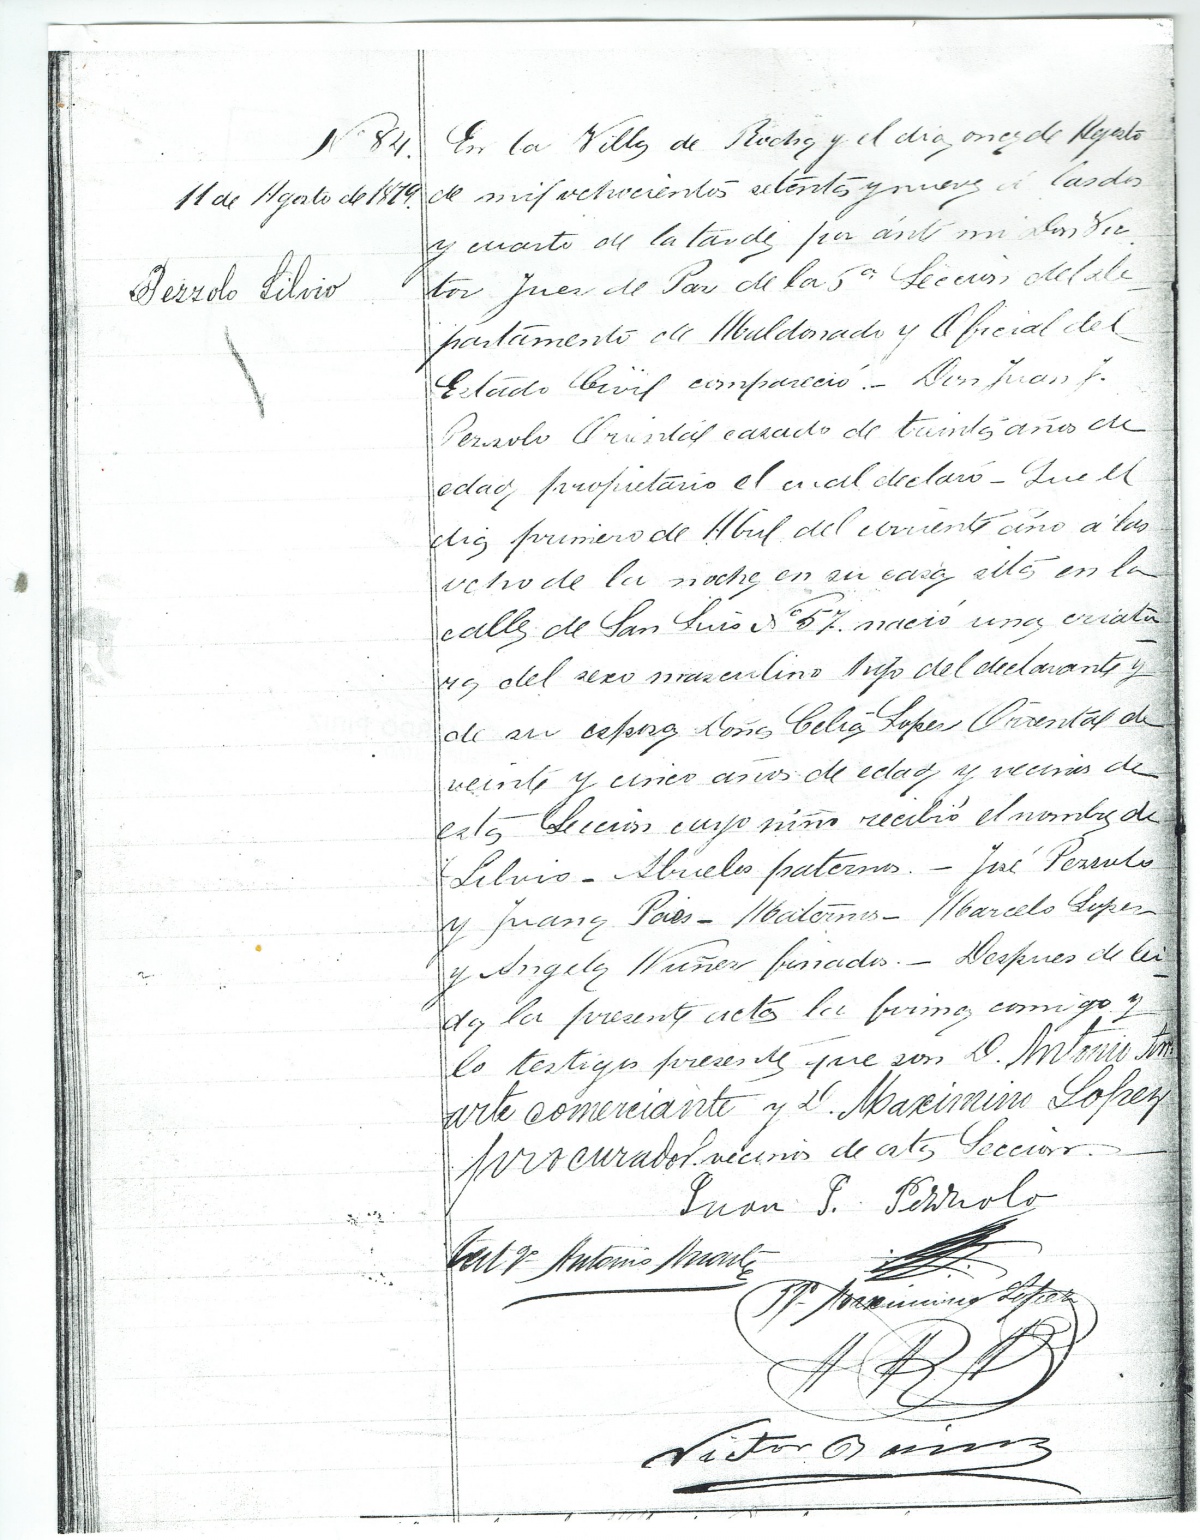 Nº 84.
11 de Agosto de 1879.
Pezzolo Silvio
En la Villa de Rocha y el dia once de Agosto
de mil ochocientos setenta y nueve á las dos
y cuarto de la tarde, por ante mi Don Vic
tor Juez de Paz de la 5ª Seccion del de-
partamento de Maldonado y Oficial del
Estado Civil compareció.- Don Juan J.
Pezzolo Oriental casado de treinta años de
edad, propietario el cual declaró- Que el
dia primero de Abril del corriente año a las
ocho de la noche en su casa sita en la
calle de San Luis Nº 57. nació una criatu
ra del sexo masculino hijo del declarante y
de su esposa Doña Celia Lopez Oriental de
veinte y cinco años de edad y vecinos de
esta Seccion cuyo niño recibió el nombre de
Silvio- Abuelos paternos.- José Pezzolo
y Juana Paes- Maternos- Marcelo Lopez
y Angela Nuñez finados.- Despues de lei-
da la presente acta la firma comigo y
lo testigos presente que son D. Antonio
comerciante y D. Maximino Lopez
procurador. vecinos de esta Seccion.-
Juan J. Pezzolo
Antonio
Maximino Lopez
Victor